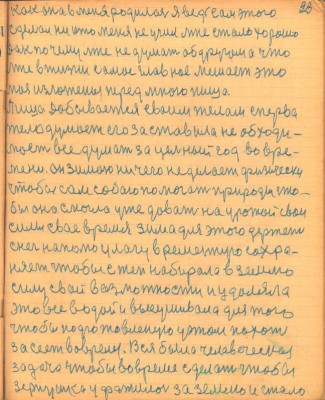 как она в меня родилась я ведь сам этого
сделал ни кто меня не учил мне стало хорошо
так почему мне не думать об других а что
мне в жизни самое главное мешает это
моя изложена предо мною пища.
Пища добывается своим телом сперва
тело думает его заставила необходи-
мость все думат за целый год во вре-
мени. он зимою ничего не делает физически
чтобы сам собою помогат природы что-
бы она смогла уже давать на урожай свои
силы свое время зима для этого держит
снег на поло и влагу в
няет чтобы степ набирала в землю
силу свой возможности и удоляла
это все водой и выкушивала для того
чтобы подготовленную у этом пахоту
засеет вовремя. Вся была человеческая
задача чтобы вовремя сделат чтобы
зернушка у землю и стало